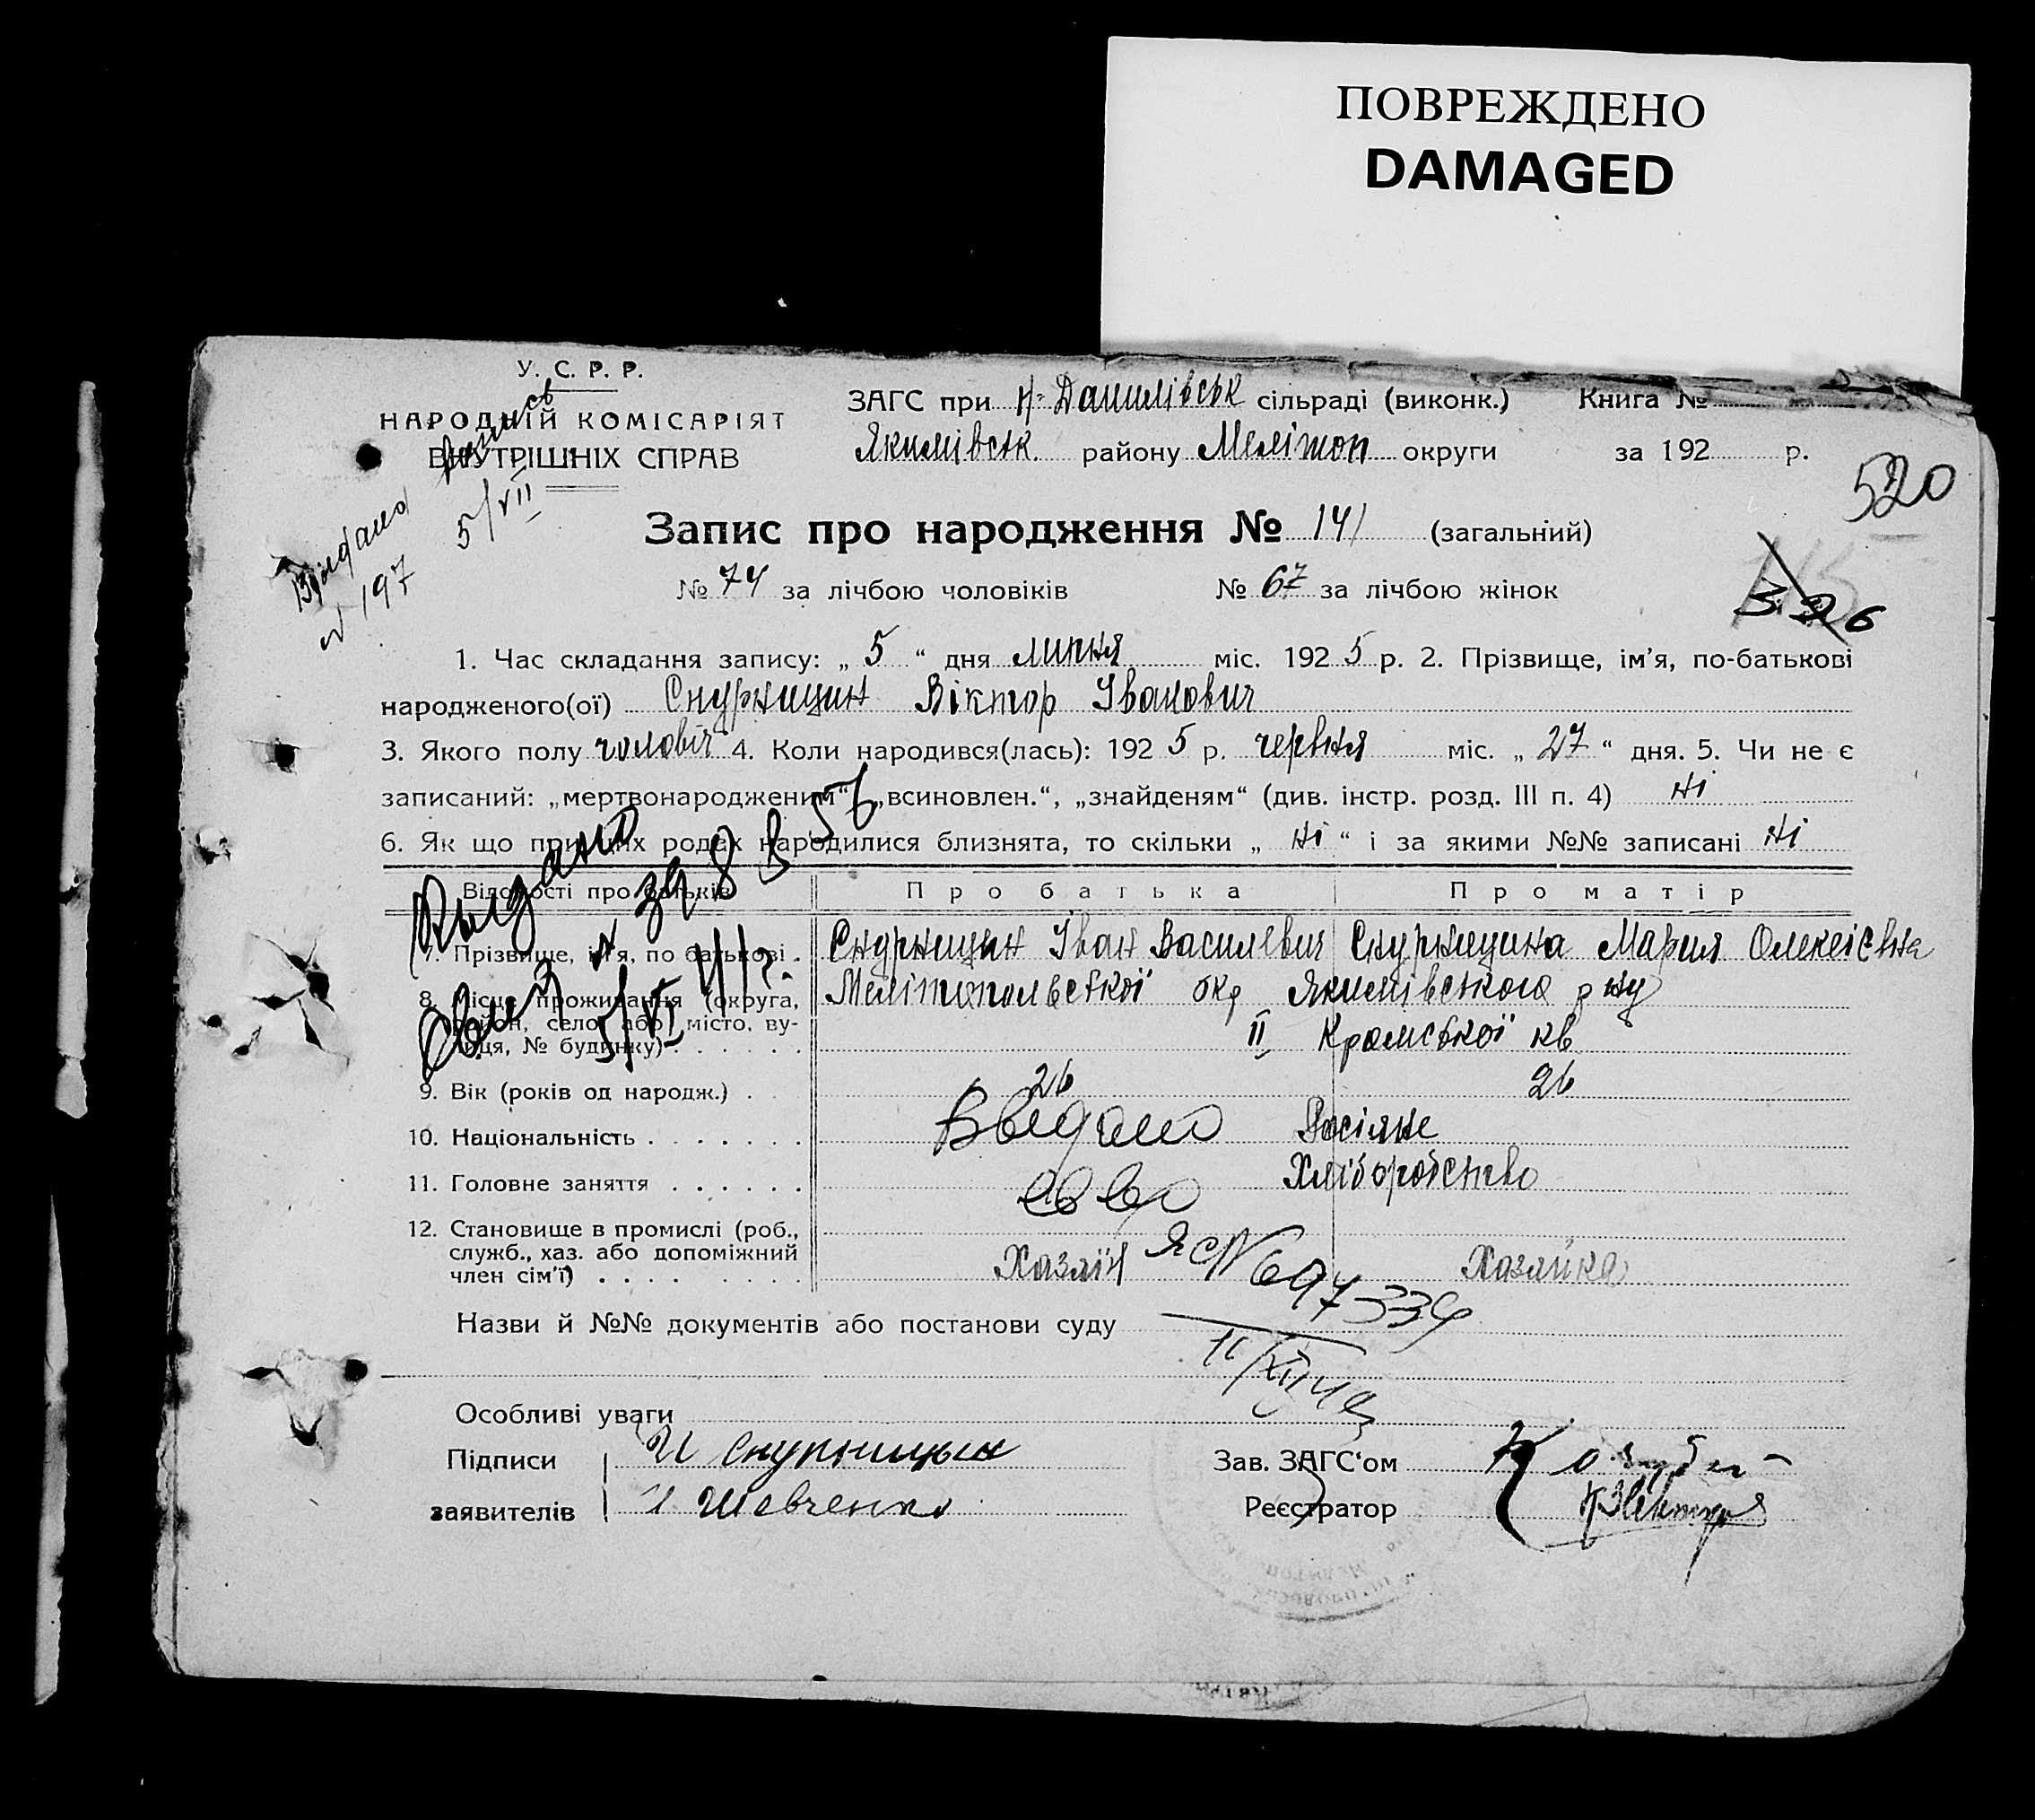 ПОВРЕЖДЕНО
DAMAGED
У. С. Р. Р.
НАРОДНІЙ КОМІСАРІЯТ
ВНУТРІШНІХ СПРАВ
ЗАГС при Н-Данилівськ сільраді (виконк.) Книга №
Якимівськ. району Мелітоп округи за 192 р.
520
Видано
№ 197 5/VII
Запис про народження № 141 (загальний)
№ 74 за лічбою чоловіків № 67 за лічбою жінок
326
1. Час складання запису: „ 5 “ дня липня міс. 192 5 р. 2. Прізвище, ім’я, по-батькові
народженого(ої) Снурницин Віктор Іванович
3. Якого полу чоловіч 4. Коли народився(лась): 192 5 р. червня міс. „ 27 “ дня. 5. Чи не є
записаний: „мертвонародженим“ „всиновлен.“, „знайденям“ (див. інстр. розд. III п. 4) ні
6. Як що при цих родах народилися близнята, то скільки „ ні “ і за якими №№ записані ні
Відомості про батьків Про батька Про матір
7. Прізвище, ім’я, по батькові . Снурницин Іван Василевич Снурницина Мария Олексієвна
8. Місце проживання (округа, Мелітопольської окр Якимівського р ну
район, село або місто, ву-
лиця, № будинку) . . . . . . II Кромської кв
9. Вік (років од народж.) . . 26 26
10. Національність . . . . . . . Росіяне
11. Головне заняття . . . . . . Хліборобство
12. Становище в промислі (роб.,
служб., хаз. або допоміжний
член сім’ї) . . . . . . . . Хазяїн Хазяйка
Выдано
Видано
яс № 697334
Назви й №№ документів або постанови суду
Особливі уваги
Підписи И Снурницын Зав. ЗАГС‘ом
заявителів И Шевченко Реєстратор